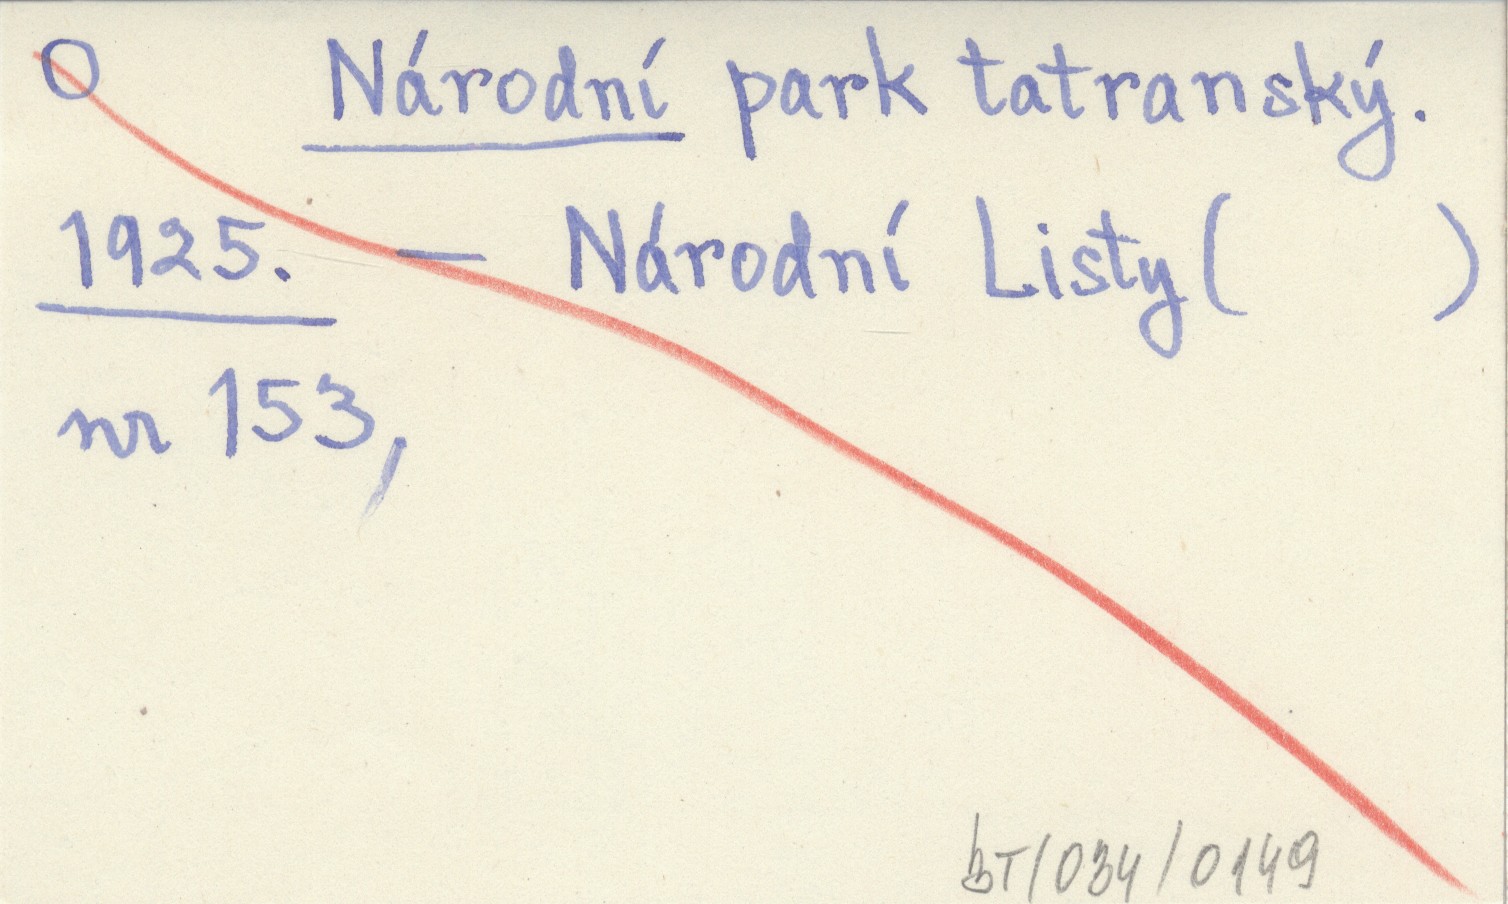 O Národní park tatranský.
1925. — Národní Listy ( )
nr 153,
BT/034/0149